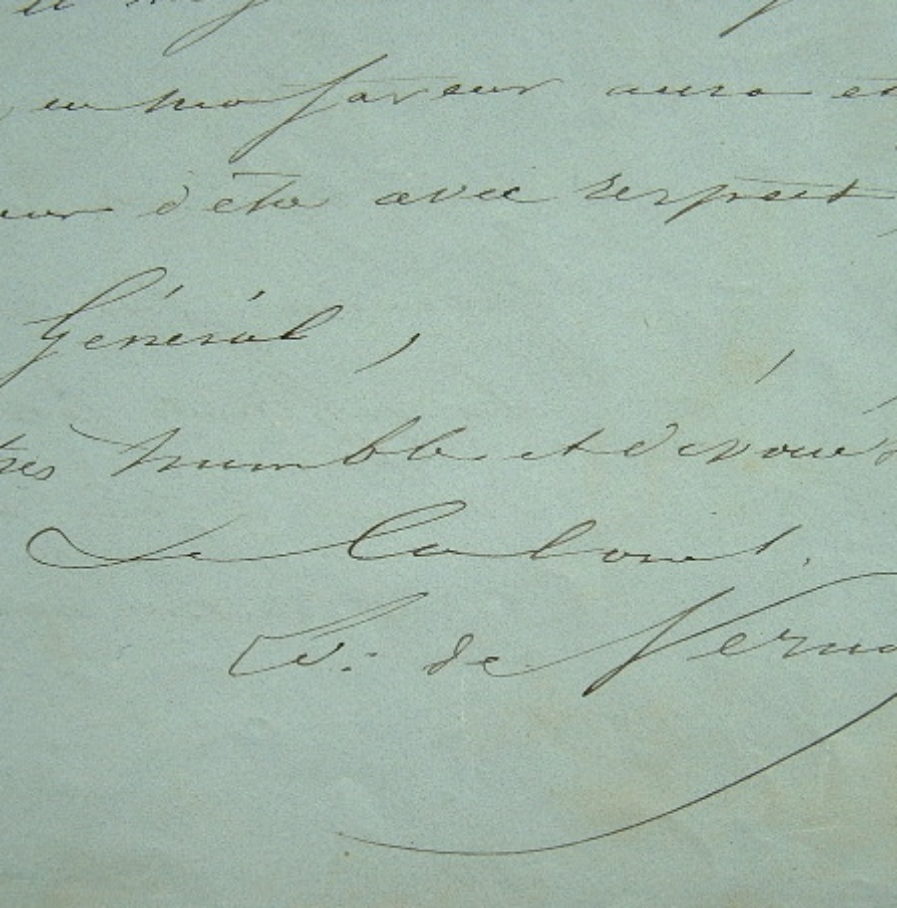 en ma faveur aura
d'être avec respect,
Général,
très humble et dévoué
Le Colonel.
de